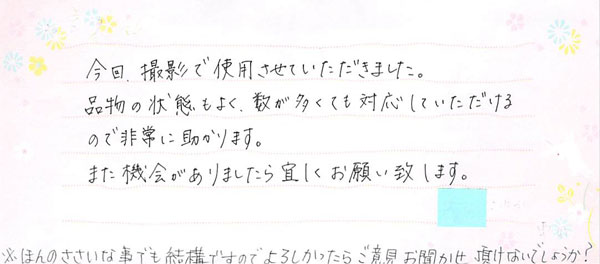 今回、撮影で使用させていただきました。
品物の状態もよく、数が多くても対応していただける
ので非常に助かります。
また機会がありましたら宜しくお願い致します。
※ほんのささいな事でも結構ですのでよろしかったらご意見お聞かせ頂けないでしょうか？